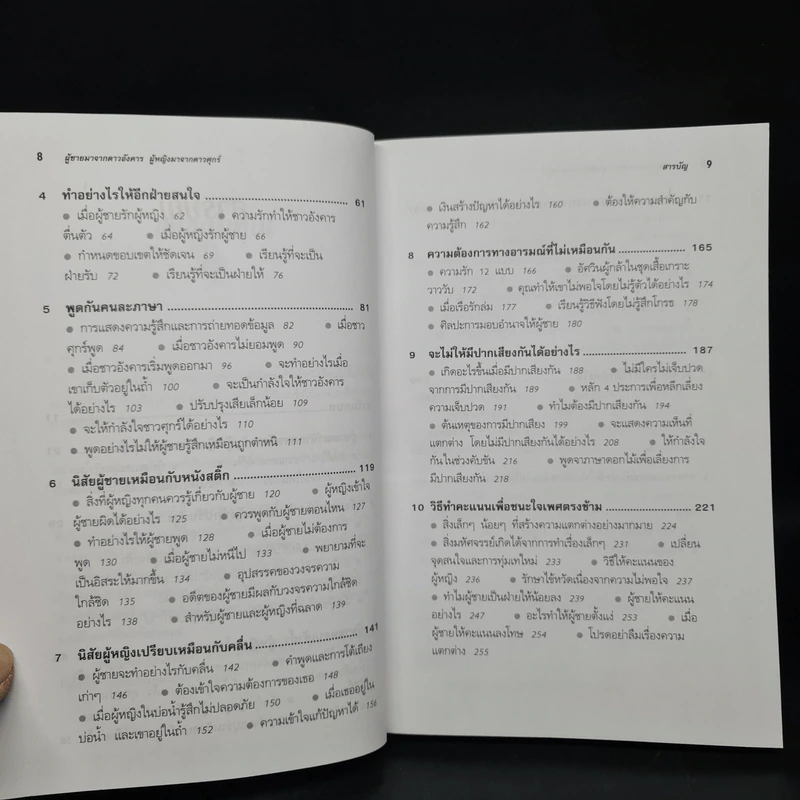 8 ผู้ชายมาจากดาวอังคาร ผู้หญิงมาจากดาวศุกร์
4 ทำอย่างไรให้อีกฝ่ายสนใจ 61
● เมื่อผู้ชายรักผู้หญิง 62 ● ความรักทำให้ชาวอังคาร
ตื่นตัว 64 ● เมื่อผู้หญิงรักผู้ชาย 66
● กำหนดขอบเขตให้ชัดเจน 69 ● เรียนรู้ที่จะเป็น
ฝ่ายรับ 72 ● เรียนรู้ที่จะเป็นฝ่ายให้ 76
5 พูดกันคนละภาษา 81
● การแสดงความรู้สึกและการถ่ายทอดข้อมูล 82 ● เมื่อชาว
ศุกร์พูด 84 ● เมื่อชาวอังคารไม่ยอมพูด 90
● เมื่อชาวอังคารเริ่มพูดออกมา 96 ● จะทำอย่างไรเมื่อ
เขาเก็บตัวอยู่ในถ้ำ 100 ● จะเป็นกำลังใจให้ชาวอังคาร
ได้อย่างไร 103 ● ปรับปรุงเสียเล็กน้อย 109
● จะให้กำลังใจชาวศุกร์ได้อย่างไร 110
● พูดอย่างไรไม่ให้ผู้ชายรู้สึกเหมือนถูกตำหนิ 111
6 นิสัยผู้ชายเหมือนกับหนังสติ๊ก 119
● สิ่งที่ผู้หญิงทุกคนควรรู้เกี่ยวกับผู้ชาย 120 ● ผู้หญิงเข้าใจ
ผู้ชายผิดได้อย่างไร 125 ● ควรพูดกับผู้ชายตอนไหน 127
● ทำอย่างไรให้ผู้ชายพูด 128 ● เมื่อผู้ชายไม่ต้องการ
พูด 130 ● เมื่อผู้ชายไม่หนีไป 133 ● พยายามที่จะ
เป็นอิสระให้มากขึ้น 134 ● อุปสรรคของวงจรความ
ใกล้ชิด 135 ● อดีตของผู้ชายมีผลกับวงจรความใกล้ชิด
อย่างไร 138 ● สำหรับผู้ชายและผู้หญิงที่ฉลาด 139
7 นิสัยผู้หญิงเปรียบเหมือนกับคลื่น 141
● ผู้ชายจะทำอย่างไรกับคลื่น 142 ● คำพูดและการโต้เถียง
เก่าๆ 146 ● ต้องเข้าใจความต้องการของเธอ 148
● เมื่อผู้หญิงในบ่อน้ำรู้สึกไม่ปลอดภัย 150 ● เมื่อเธออยู่ใน
บ่อน้ำ และเขาอยู่ในถ้ำ 152 ● ความเข้าใจแก้ปัญหาได้ 156
สารบัญ 9
● เงินสร้างปัญหาได้อย่างไร 160 ● ต้องให้ความสำคัญกับ
ความรู้สึก 162
8 ความต้องการทางอารมณ์ที่ไม่เหมือนกัน 165
● ความรัก 12 แบบ 166 ● อัศวินผู้กล้าในชุดเสื้อเกราะ
วาววับ 172 ● คุณทำให้เขาไม่พอใจโดยไม่รู้ตัวได้อย่างไร 174
● เมื่อเรือรักล่ม 177 ● เรียนรู้วิธีฟังโดยไม่รู้สึกโกรธ 178
● ศิลปะการมอบอำนาจให้ผู้ชาย 180
9 จะไม่ให้มีปากเสียงกันได้อย่างไร 187
● เกิดอะไรขึ้นเมื่อมีปากเสียงกัน 188 ● ไม่มีใครไม่เจ็บปวด
จากการมีปากเสียงกัน 189 ● หลัก 4 ประการเพื่อหลีกเลี่ยง
ความเจ็บปวด 191 ● ทำไมต้องมีปากเสียงกัน 194
● ต้นเหตุของการมีปากเสียง 199 ● จะแสดงความเห็นที่
แตกต่าง โดยไม่มีปากเสียงกันได้อย่างไร 208 ● ให้กำลังใจ
กันในช่วงคับขัน 216 ● พูดจาภาษาดอกไม้เพื่อเลี่ยงการ
มีปากเสียงกัน 218
10 วิธีทำคะแนนเพื่อชนะใจเพศตรงข้าม 221
● สิ่งเล็กๆ น้อยๆ ที่สร้างความแตกต่างอย่างมากมาย 224
● สิ่งมหัศจรรย์เกิดได้จากการทำเรื่องเล็กๆ 231 ● เปลี่ยน
จุดสนใจและการทุ่มเทใหม่ 233 ● วิธีให้คะแนนของ
ผู้หญิง 236 ● รักษาไข้หวัดเนื่องจากความไม่พอใจ 237
● ทำไมผู้ชายเป็นฝ่ายให้น้อยลง 239 ● ผู้ชายให้คะแนน
อย่างไร 247 ● อะไรทำให้ผู้ชายตั้งแง่ 253 ● เมื่อ
ผู้ชายให้คะแนนลงโทษ 254 ● โปรดอย่าลืมเรื่องความ
แตกต่าง 255